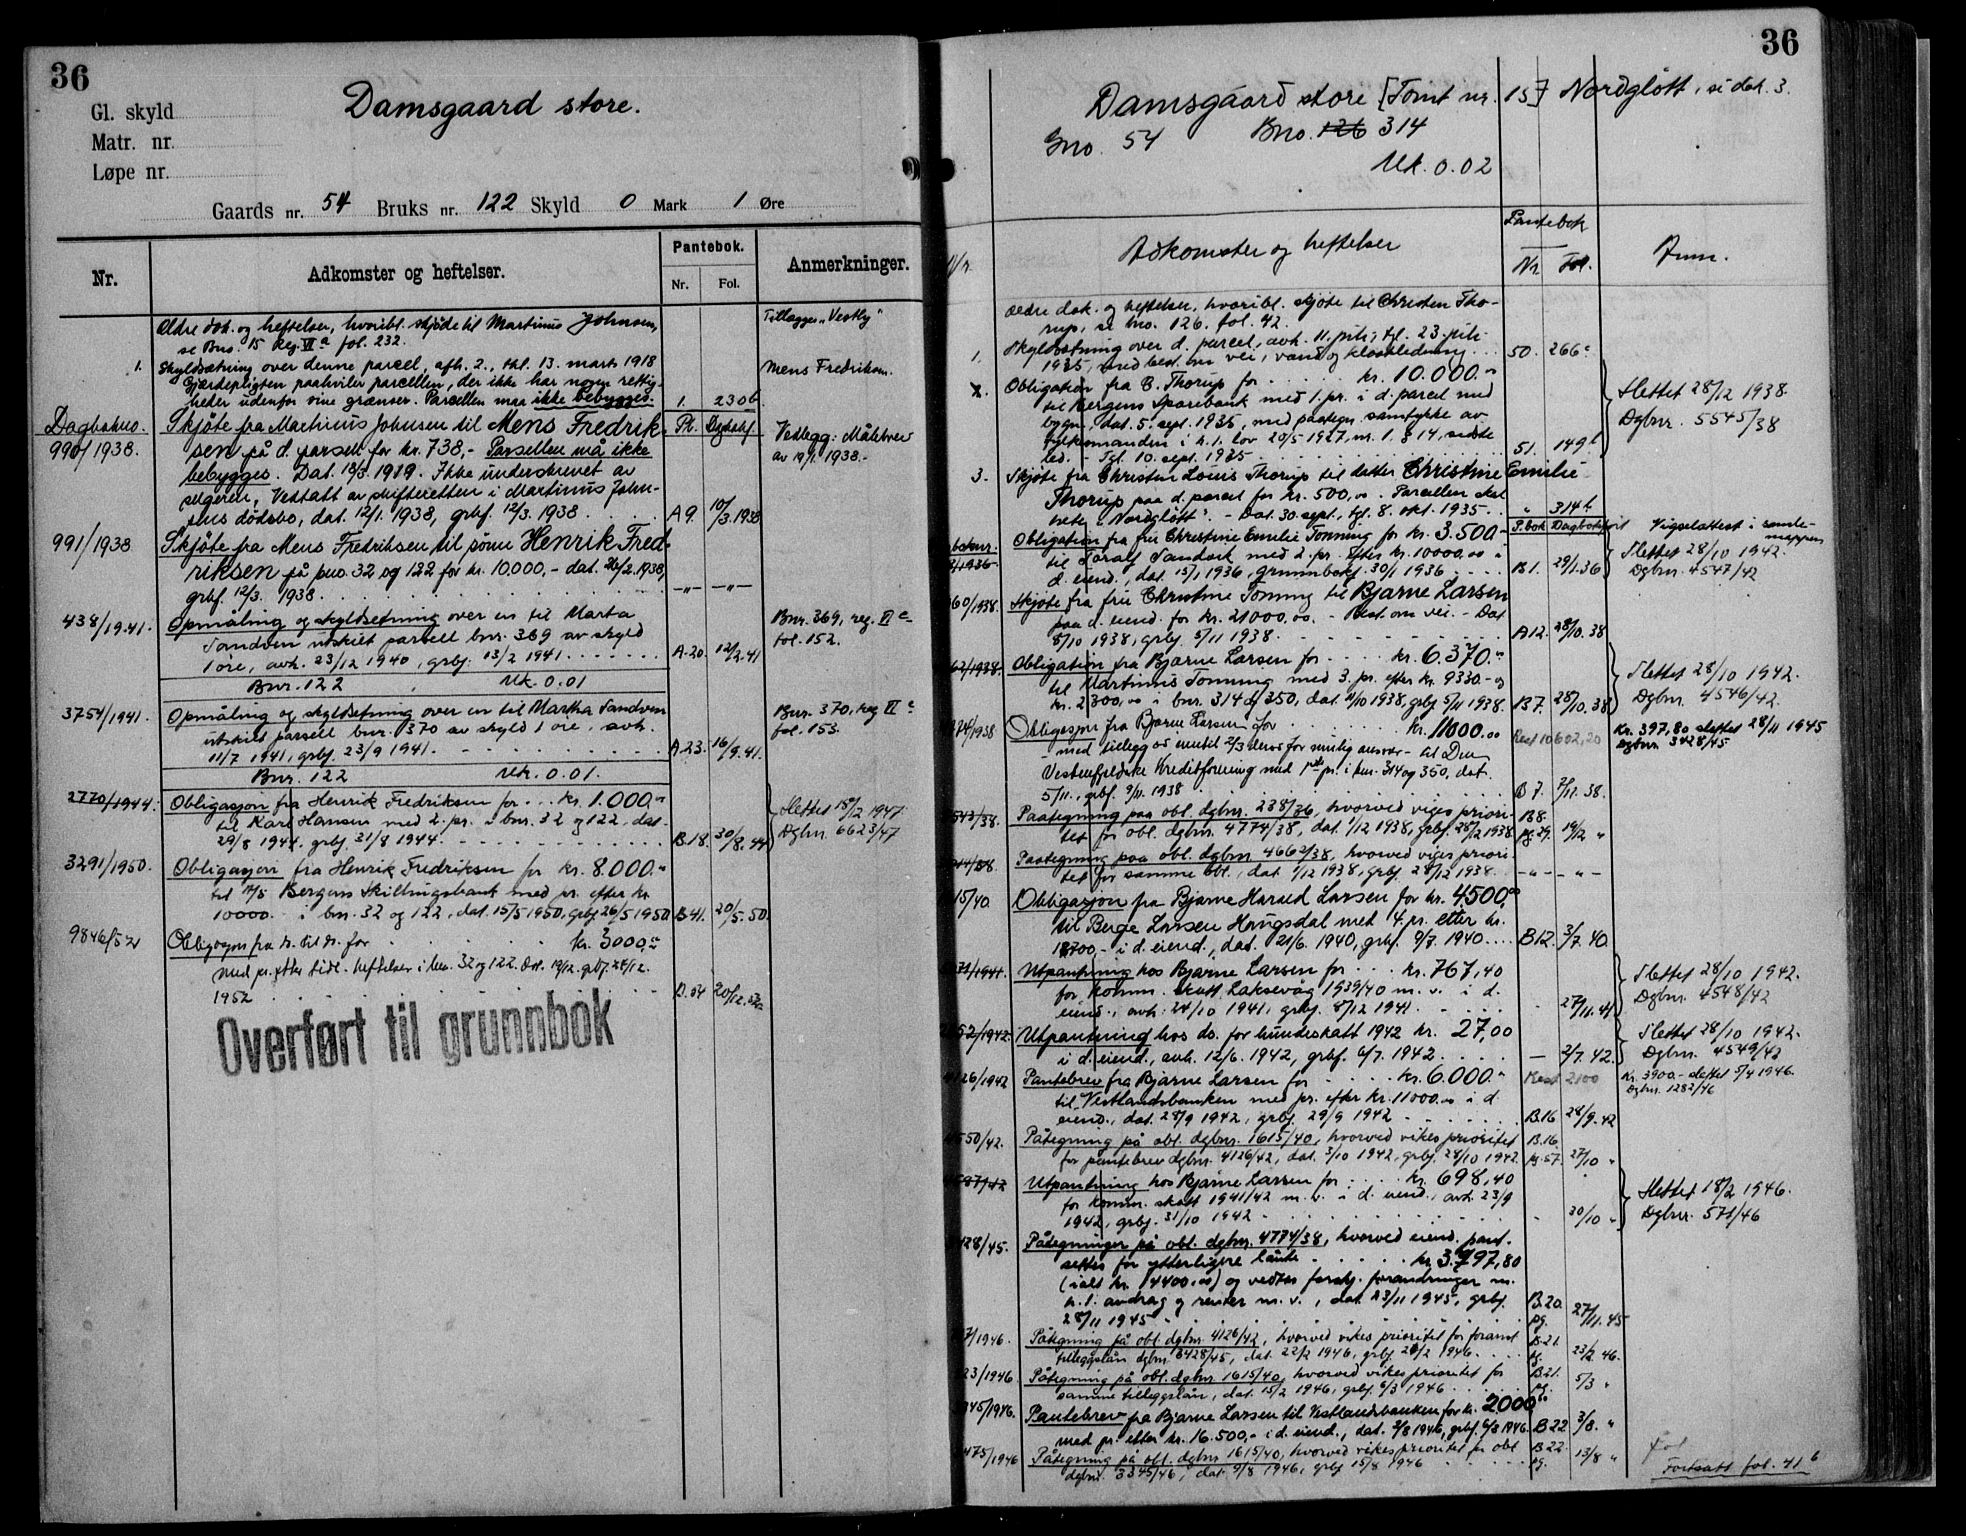 36
Gl. skyld
Matr. nr.
Løpe nr.
Damsgaard store.
Gaards nr. 54 Bruks nr. 122 Skyld 0 Mark 1 Øre
Nr.
Adkomster og heftelser.
Pantebok.
Nr. Fol.
Anmerkninger.
Ældre dok. og heftelser, hvoribl. skjøde til Martinus Johnsen,
se Bno. 15 Reg. VI a fol. 232.
Tillægges "Vestly"
1. Skyldsætning over denne parcel, afh. 2., thl. 13. marts 1918
Mens Fredriksen.
Gjerdepligten paahviler parcellen, der ikke har nogen rettig-
heder udenfor sine grænser. Parcellen maa ikke bebygges. 1. 230b.
Dagboknr. Skjøte fra Martinus Johnsen til Mens Fredrik-
990/1938. sen på d. parsell for kr. 738,- Parsellen må ikke
Vedlegg: Målebrev
av 19/1. 1938.-
bebygges. Dat. 18/3. 1919. Ikke underskrevet av
selgeren. Vedtatt av skifteretten i Martinus John-
sens dødsbo, dat. 12/1. 1938, grbf. 12/3. 1938 A9. 10/3.1938
991/1938 Skjøte fra Mens Fredriksen til sønn Henrik Fred-
riksen på bno. 32 og 122 for kr. 10.000,- dat. 26/2.1938,
grbf. 12/3. 1938 -"- -"-
438/1941. Opmåling og skyldsetning over en til Marta
Sandven utskilt parsell bnr. 369 av skyld
1 øre, avh. 23/12 1940, grbf. 13/2 1941. A.20. 12/2.41
Bnr. 369, reg. VI c
fol. 152.
Bnr. 122 Mk. 0.01
3754/1941. Opmåling og skyldsetning over en til Martha Sandven
utskilt parsell bnr. 370 av skyld 1 øre, avh.
11/7 1941, grbf. 23/9 1941. A.23. 16/9.41.
Bnr. 370, reg VI c
fol. 153.
Bnr. 122 Mk. 0.01.
2770/1944. Obligasjon fra Henrik Fredriksen for kr. 1.000.-
til Karl Hansen med 2. pr. i bnr. 32 og 122, dat.
29/8 1944, grbf. 31/8 1944. B.18. 30/8.44
Slettet 15/12 1947.
Dgbnr. 6623/47
3291/1950. Obligasjon fra Henrik Fredriksen for kr. 8.000.-
til A/S Bergens Skillingsbank med pr. efter kr.
10000.- i bnr. 32 og 122, dat. 15/5 1950, grbf. 26/5 1950 B41. 20/5.50.
9846/52 Obligasjon fra ds. til ds. for kr. 3000.-
med pr. etter tidl. heftelser i bnr. 32 og 122. Dat. 19/12. grbf.
1952 20/12.52
Overført til grunnbok
36
Damsgaard store [Tomt nr. 15] Nordgløtt, se dok. 3.
Gno. 54 Bno. 126 314
Mk. 0.02
Nr. Adkomster og heftelser
Pantebok
Nr Fol.
Anm.
Ældre dok. og heftelser, hvoribl. skjøte til Christen Tho-
rup, se bno. 126. fol. 42.
1. Skyldsætning over d. parcel, avh. 11. juli, tgl. 23. juli
1935, med best. om vei, vand og kloakledning 50. 266c
2. Obligation fra C. Thorup for kr. 10.000.-
til Bergens Sparebank med 1. pr. i d. parcel med
bygn., dat. 5. sept. 1935, med paategn. samtykke av
fylkesmanden i h. t. lov 20/5 1927, nr. 1, § 14, sidste
led. - Tgl. 10. sept. 1935 51. 149b
Slettet 28/12 1938.
Dgbnr. 5545/38
3. Skjøte fra Christen Louis Thorup til datter Christine Emilie
Thorup paa d. parcel for kr. 500,00. Parcellen skal
hete "Nordgløtt". - Dat. 30. sept., tgl. 8. okt. 1935. " 314b
P.bok Dagbokført
Obligation fra fru Christine Emilie Tonning for kr. 3.500.-
til Toralf Sandvik med 2. pr. efter kr. 10000.00 i
d. eiend., dat. 15/1 1936, grunnbokf. 30/1 1936 B1. 29/1.36
Vigselattest i samle-
mappen
Slettet 28/10 1942.
Dgbnr. 4547/42
Skjøte fra fru Christine Tonning til Bjarne Larsen
paa d. eiend. for kr. 21000.00. - Best. om vei. - Dat
8/10 1938, grbf. 5/11 1938. A12. 28/10.38
Obligation fra Bjarne Larsen for kr. 6.370.-
til Martinus Tonning med 3. pr. efter kr. 9330.- og
kr. 2300,00 i bnr. 314 og 350, dat. 8/10 1938, grbf. 5/11 1938. B7. 28/10.38
Slettet 28/10 1942.
Dgbnr. 4546/42.
Obligasjon fra Bjarne Larsen for kr. 11000.00 Rest 10602,20
Kr. 397,80 slettet 28/11 1945
Dgbnr. 3428/45
med tillegg av inntil 2/3 derav for mulig ansvar - til Den
Vestenfjeldske Kreditforening med 1ste pr. i bnr. 314 og 350, dat.
5/11., grbf. 9/11. 1938 B7. 7/11.38.
Paategning paa obl. dgbnr. 238/36, hvorved viges priori- B8.
tet for obl. dgbnr. 4774/38, dat. 1/12 1938, grbf. 28/12 1938 pg.29. 19/12 "
Paategning paa obl. dgbnr. 4662/38, hvorved viges priori-
tet for samme obl., dat. 1/12 1938, grbf. 28/12 1938. -"- -"-
Obligasjon fra Bjarne Harald Larsen for kr. 4500.00
til Berge Larsen Haugsdal med 4. pr. etter kr.
18700,- i d. eiend., dat. 21/6. 1940, grbf. 9/7. 1940 B12. 3/7.40.
Utpantning hos Bjarne Larsen for kr. 767,40
for komm. skatt Laksevåg 1939/40 m. v. i d.
eiend., avh. 24/10 1941, grbf. 8/12 1941. 27/11.41
Slettet 28/10 1942.
Dgbnr. 4548/42
Utpantning hos ds. for hundeskatt 1942 kr. 27,00
i d. eiend., avh. 12/6. 1942, grbf. 6/7. 1942. - 2/7.42.
Slettet 28/10 1942.
Dgbnr. 4549/42
Pantebrev fra Bjarne Larsen for kr. 6.000.- Rest 2100
Kr. 3900.- slettet 5/4 1946.
Dgbnr. 1282/46
til Vestlandsbanken med pr. efter kr. 11000.00 i d.
eiend., dat. 28/9 1942, grbf. 29/9 1942 B.16 28/9.42
Påtegning på obl. dgbnr. 1615/40, hvorved vikes prioritet B.16.
for pantebrev dgbnr. 4126/42, dat. 3/10 1942, grbf. 28/10 1942. pg.57. 27/10 "
Utpantning hos Bjarne Larsen for kr. 698,40
for komm. skatt 1941/42 m. v. i d. eiend., avh. 23/9
1942, grbf. 31/10 1942 - 30/10 "
Slettet 18/2 1946.
Dgbnr. 571/46
Påtegninger på obl. dgbnr. 4774/38, hvorved eiend. pant-
settes for ytterligere lånte kr. 3.797,80
(ialt kr. 14400,00) og vedtas forskj. forandringer m.
h. t. avdrag og renter m. v., dat. 23/11 1945, grbf. B.20.
28/11 1945 pg. 27/11.45
Påtegning på obl. dgbnr. 4126/42, hvorved vikes prioritet for foran B.21.
tilleggslån dgbnr. 3428/45, dat. 22/2 1946, grbf. 2 1946. pg. 23/2.46.
Påtegning på obl. dgbnr. 1615/40, hvorved vikes prioritet for B.21.
samme tilleggslån, dat. 15/2 1946, grbf. 6/3 1946 pg. 5/3 "
Pantebrev fra Bjarne Larsen til Vestlandsbanken for kr. 2000.-
med pr. etter kr. 16.500,- i d. eiend., dat. 2/8 1946, grbf. 6/8 1946. B22 3/8. "
Påtegning på obl. dgbnr. 1615/40, hvorved vikes prioritet for obl. B22.
dgbnr. 3345/46, dat. 9/8 1946, grbf. 15/8 1946 pg. 13/8 "
Fortsatt fol. 41 b